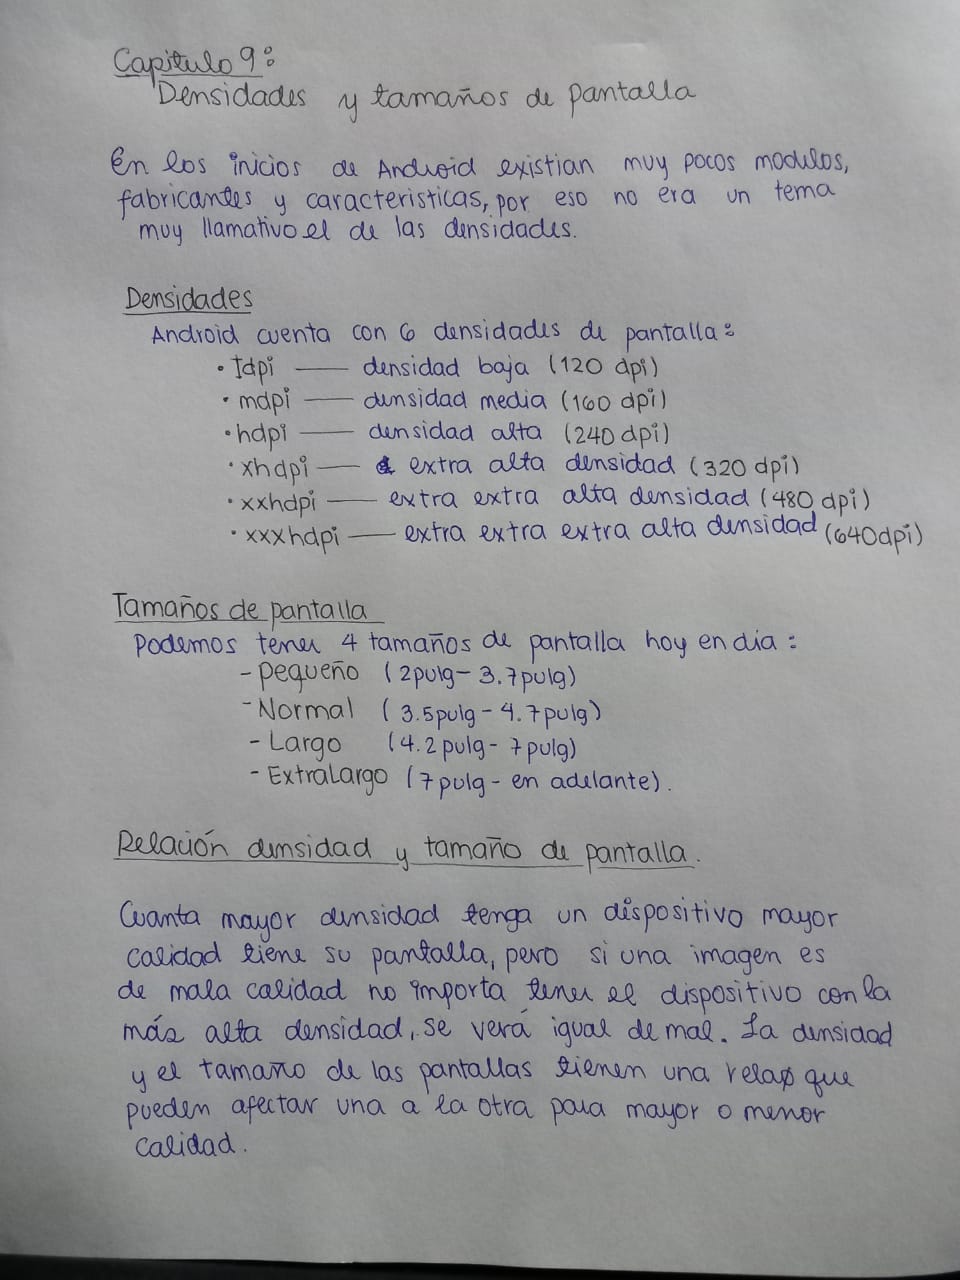 Capitulo 9:
Densidades y tamaños de pantalla
En los inicios de Android existian muy pocos modulos,
fabricantes y caracteristicas, por eso no era un tema
muy llamativo el de las densidades.
Densidades
Android cuenta con 6 densidades de pantalla:
• Idpi — densidad baja (120 dpi)
• mdpi — densidad media (160 dpi)
• hdpi — densidad alta (240 dpi)
• xhdpi — extra alta densidad (320 dpi)
• xxhdpi — extra extra alta densidad (480 dpi)
• xxxhdpi — extra extra extra alta densidad (640dpi)
Tamaños de pantalla
Podemos tener 4 tamaños de pantalla hoy en dia:
- Pequeño (2pulg- 3.7pulg)
- Normal (3.5pulg - 4.7pulg)
- Largo (4.2 pulg - 7pulg)
- ExtraLargo (7pulg - en adelante).
Relación densidad y tamaño de pantalla.
Cuanta mayor densidad tenga un dispositivo mayor
calidad tiene su pantalla, pero si una imagen es
de mala calidad no importa tener el dispositivo con la
más alta densidad, se verá igual de mal. La densidad
y el tamaño de las pantallas tienen una relao que
pueden afectar una a la otra para mayor o menor
calidad.